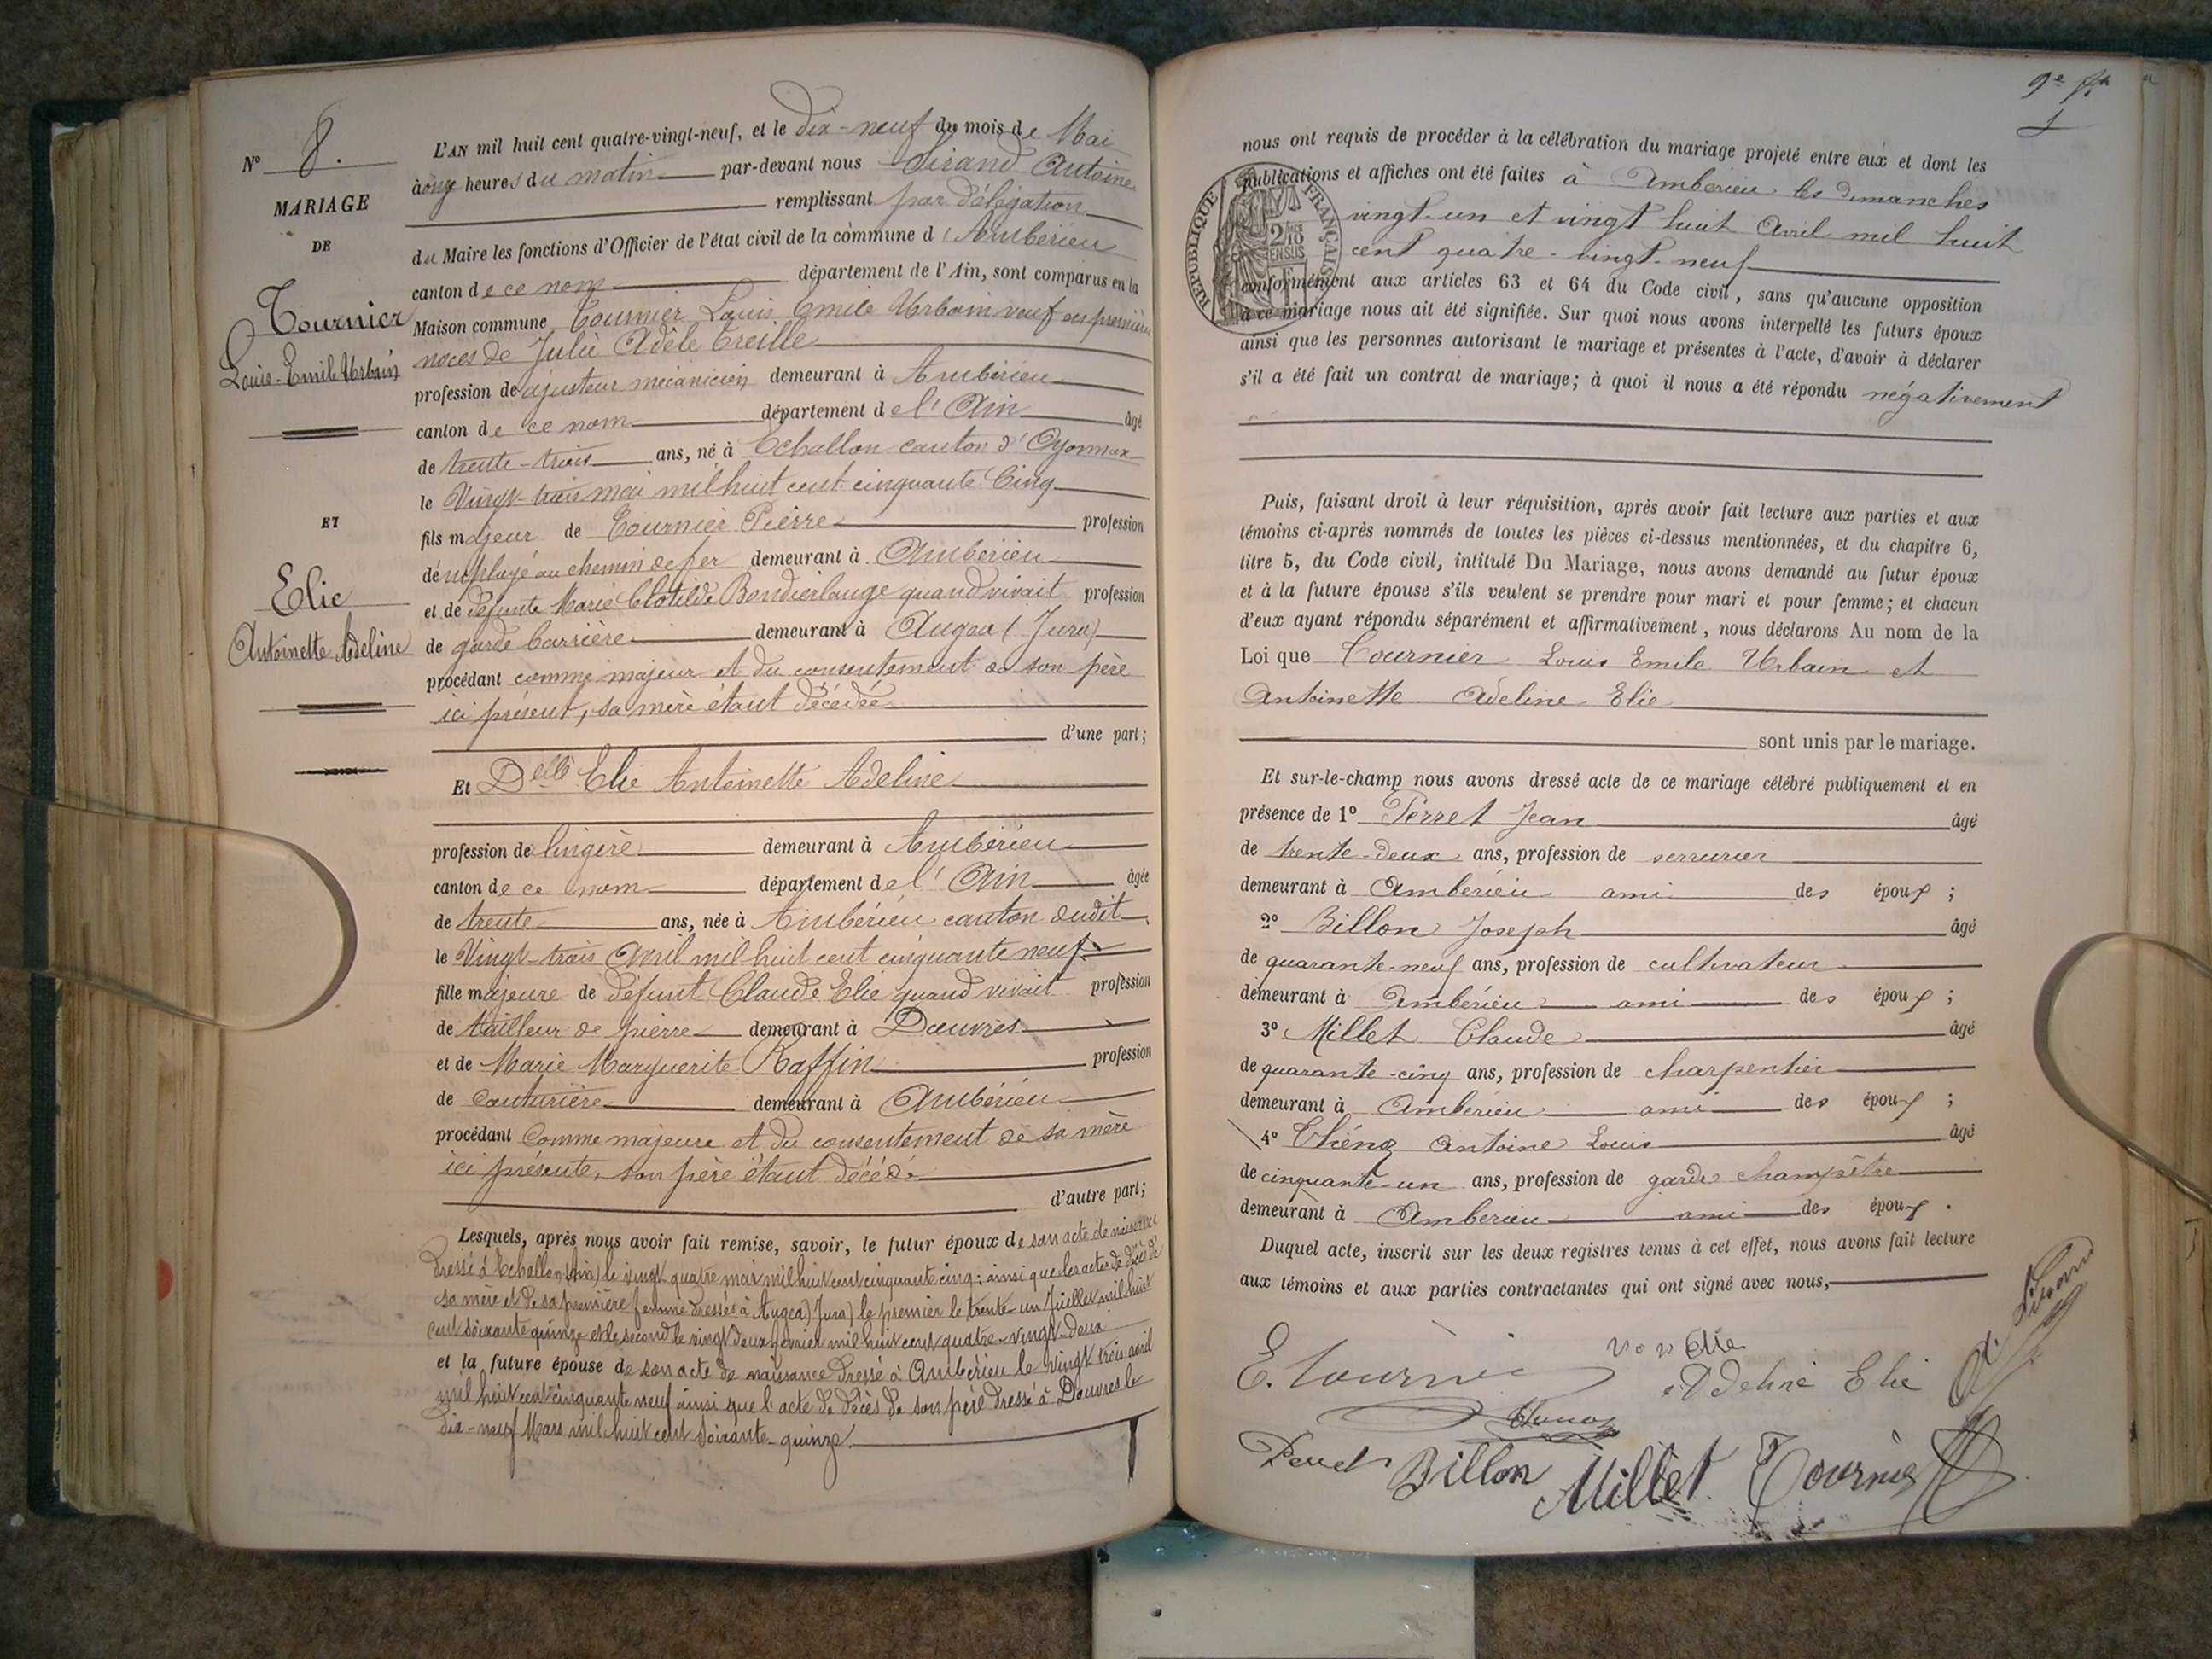 N° 8.
MARIAGE
DE
Tournier
Louis-Emile Urbain
ET
Elie
Antoinette Adeline
L'AN mil huit cent quatre-vingt-neuf, et le dix-neuf du mois de Mai
à onze heures du matin par-devant nous Sirand Antoine
remplissant par délégation
du Maire les fonctions d'Officier de l'état civil de la commune d'Ambérieu
canton de ce nom département de l'Ain, sont comparus en la
Maison commune Tournier Louis Emile Urbain veuf en premières
noces de Julie Adèle Treille
profession de ajusteur mécanicien demeurant à Ambérieu
canton de ce nom département de l'Ain âgé
de trente-trois ans, né à Echallon canton d'Oyonnax
le Vingt-trois mai mil huit cent cinquante Cinq
fils majeur de Tournier Pierre profession
d'employé au chemin de fer demeurant à Ambérieu
et de défunte Marie Clotilde quand vivait profession
de garde barrière demeurant à Augea (Jura)
procédant comme majeur et du consentement de son père
ici présent, sa mère étant décédée
d'une part;
Et Delle Elie Antoinette Adeline
profession de lingère demeurant à Ambérieu
canton de ce nom département de l'Ain âgée
de trente ans, née à Ambérieu canton dudit
le Vingt-trois Avril mil huit cent cinquante neuf
fille majeure de défunt Claude Elie quand vivait profession
de tailleur de pierre demeurant à Douvres
et de Marie Marguerite Raffin profession
de Couturière demeurant à Ambérieu
procédant Comme majeure et du consentement de sa mère
ici présente, son père étant décédé
d'autre part;
Lesquels, après nous avoir fait remise, savoir, le futur époux de son acte de naissance
dressé à Echallon (Ain) le vingt quatre mai mil huit cent cinquante cinq; ainsi que les actes de décès de
sa mère et de sa première femme dressés à Augea (Jura) le premier le trente-un Juillet mil huit
cent soixante quinze et le second le vingt deux février mil huit cent quatre-vingt-deux
et la future épouse de son acte de naissance dressé à Ambérieu le vingt trois avril
mil huit cent cinquante neuf ainsi que l'acte de décès de son père dressé à Douvres le
dix-neuf Mars mil huit cent soixante-quinze.
nous ont requis de procéder à la célébration du mariage projeté entre eux et dont les
publications et affiches ont été faites à Amberieu les dimanches
vingt-un et vingt huit Avril mil huit
cent quatre-vingt-neuf
conformément aux articles 63 et 64 du Code civil, sans qu'aucune opposition
à ce mariage nous ait été signifiée. Sur quoi nous avons interpellé les futurs époux
ainsi que les personnes autorisant le mariage et présentes à l'acte, d'avoir à déclarer
s'il a été fait un contrat de mariage; à quoi il nous a été répondu négativement
RÉPUBLIQUE FRANÇAISE
2/10 EN SUS
Puis, faisant droit à leur réquisition, après avoir fait lecture aux parties et aux
témoins ci-après nommés de toutes les pièces ci-dessus mentionnées, et du chapitre 6,
titre 5, du Code civil, intitulé Du Mariage, nous avons demandé au futur époux
et à la future épouse s'ils veulent se prendre pour mari et pour femme; et chacun
d'eux ayant répondu séparément et affirmativement, nous déclarons Au nom de la
Loi que Tournier Louis Emile Urbain et
Antoinette Adeline Elie
sont unis par le mariage.
Et sur-le-champ nous avons dressé acte de ce mariage célébré publiquement et en
présence de 1° Perret Jean âgé
de trente-deux ans, profession de serrurier
demeurant à Ambérieu ami des époux;
2° Billon Joseph âgé
de quarante-neuf ans, profession de cultivateur
demeurant à Ambérieu ami des époux;
3° Millet Claude âgé
de quarante-cinq ans, profession de charpentier
demeurant à Ambérieu ami des époux;
4° Antoine Louis âgé
de cinquante-un ans, profession de garde champêtre
demeurant à Amberieu ami des époux.
Duquel acte, inscrit sur les deux registres tenus à cet effet, nous avons fait lecture
aux témoins et aux parties contractantes qui ont signé avec nous,
E. Tournier
Elie
Adeline Elie
A. Sirand
Perret Billon Millet Tournier